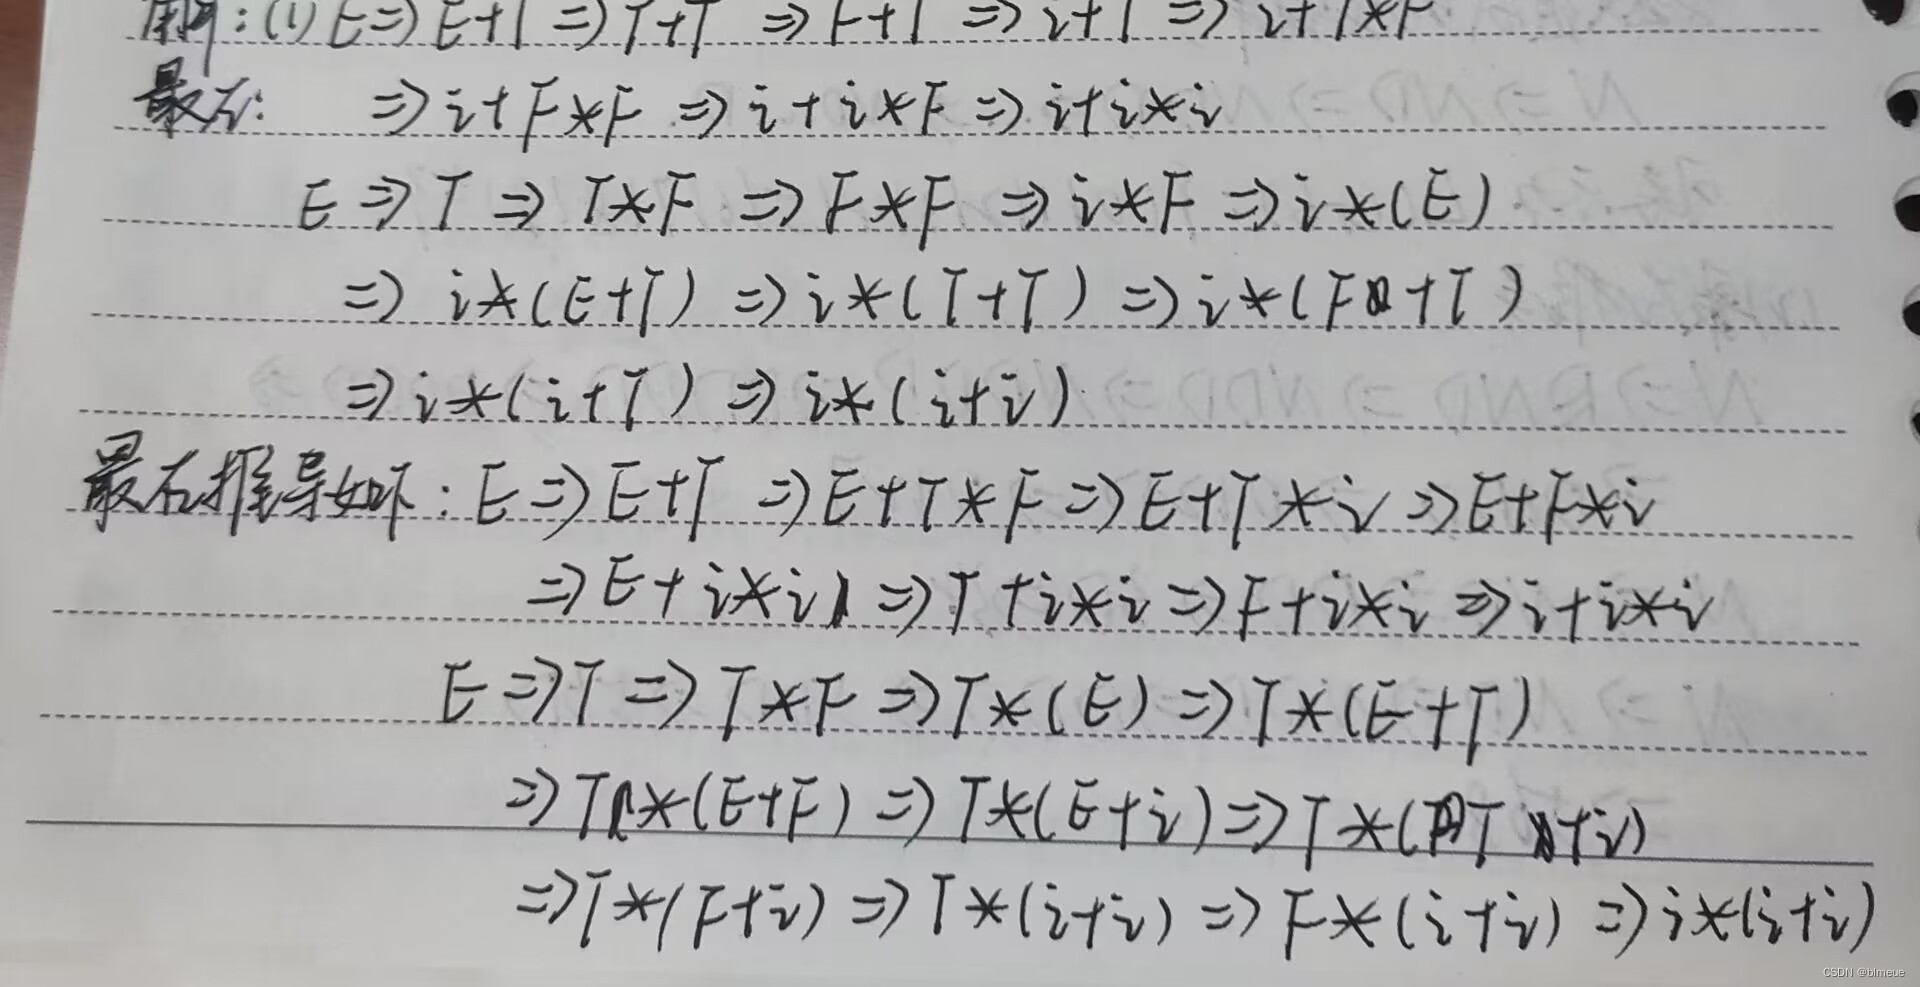 解:(1) E⇒E+T⇒T+T⇒F+T⇒i+T⇒i+T*F
最左: ⇒i+F*F⇒i+i*F⇒i+i*i
E⇒T⇒T*F⇒F*F⇒i*F⇒i*(E)
⇒i*(E+T)⇒i*(T+T)⇒i*(F+T)
⇒i*(i+T)⇒i*(i+i)
最右推导如下: E⇒E+T⇒E+T*F⇒E+T*i⇒E+F*i
⇒E+i*i⇒T+i*i⇒F+i*i⇒i+i*i
E⇒T⇒T*F⇒T*(E)⇒T*(E+T)
⇒T*(E+F)⇒T*(E+i)⇒T*(T+i)
⇒T*(F+i)⇒T*(i+i)⇒F*(i+i)⇒i*(i+i)
CSDN @blmeue